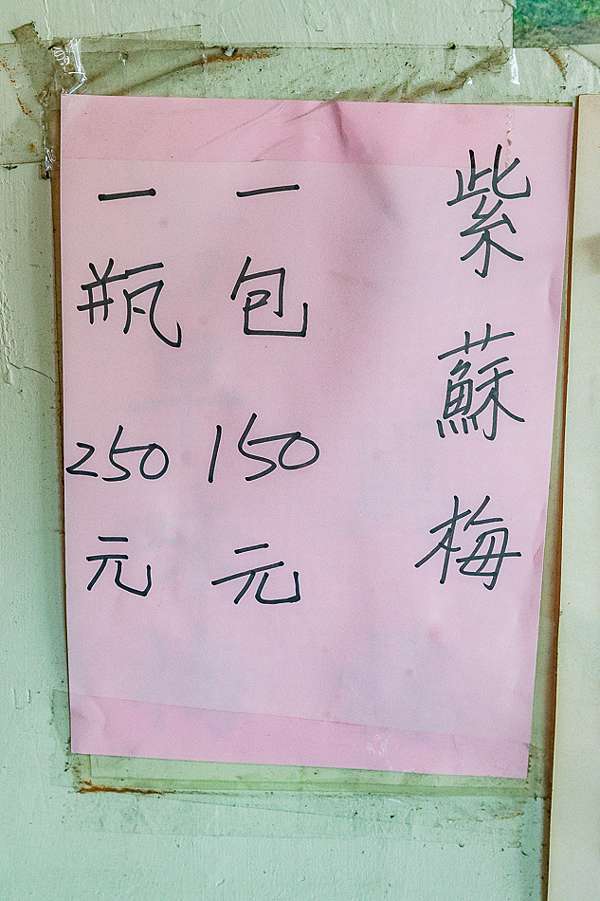 紫蘇梅
一包 150元
一瓶 250元